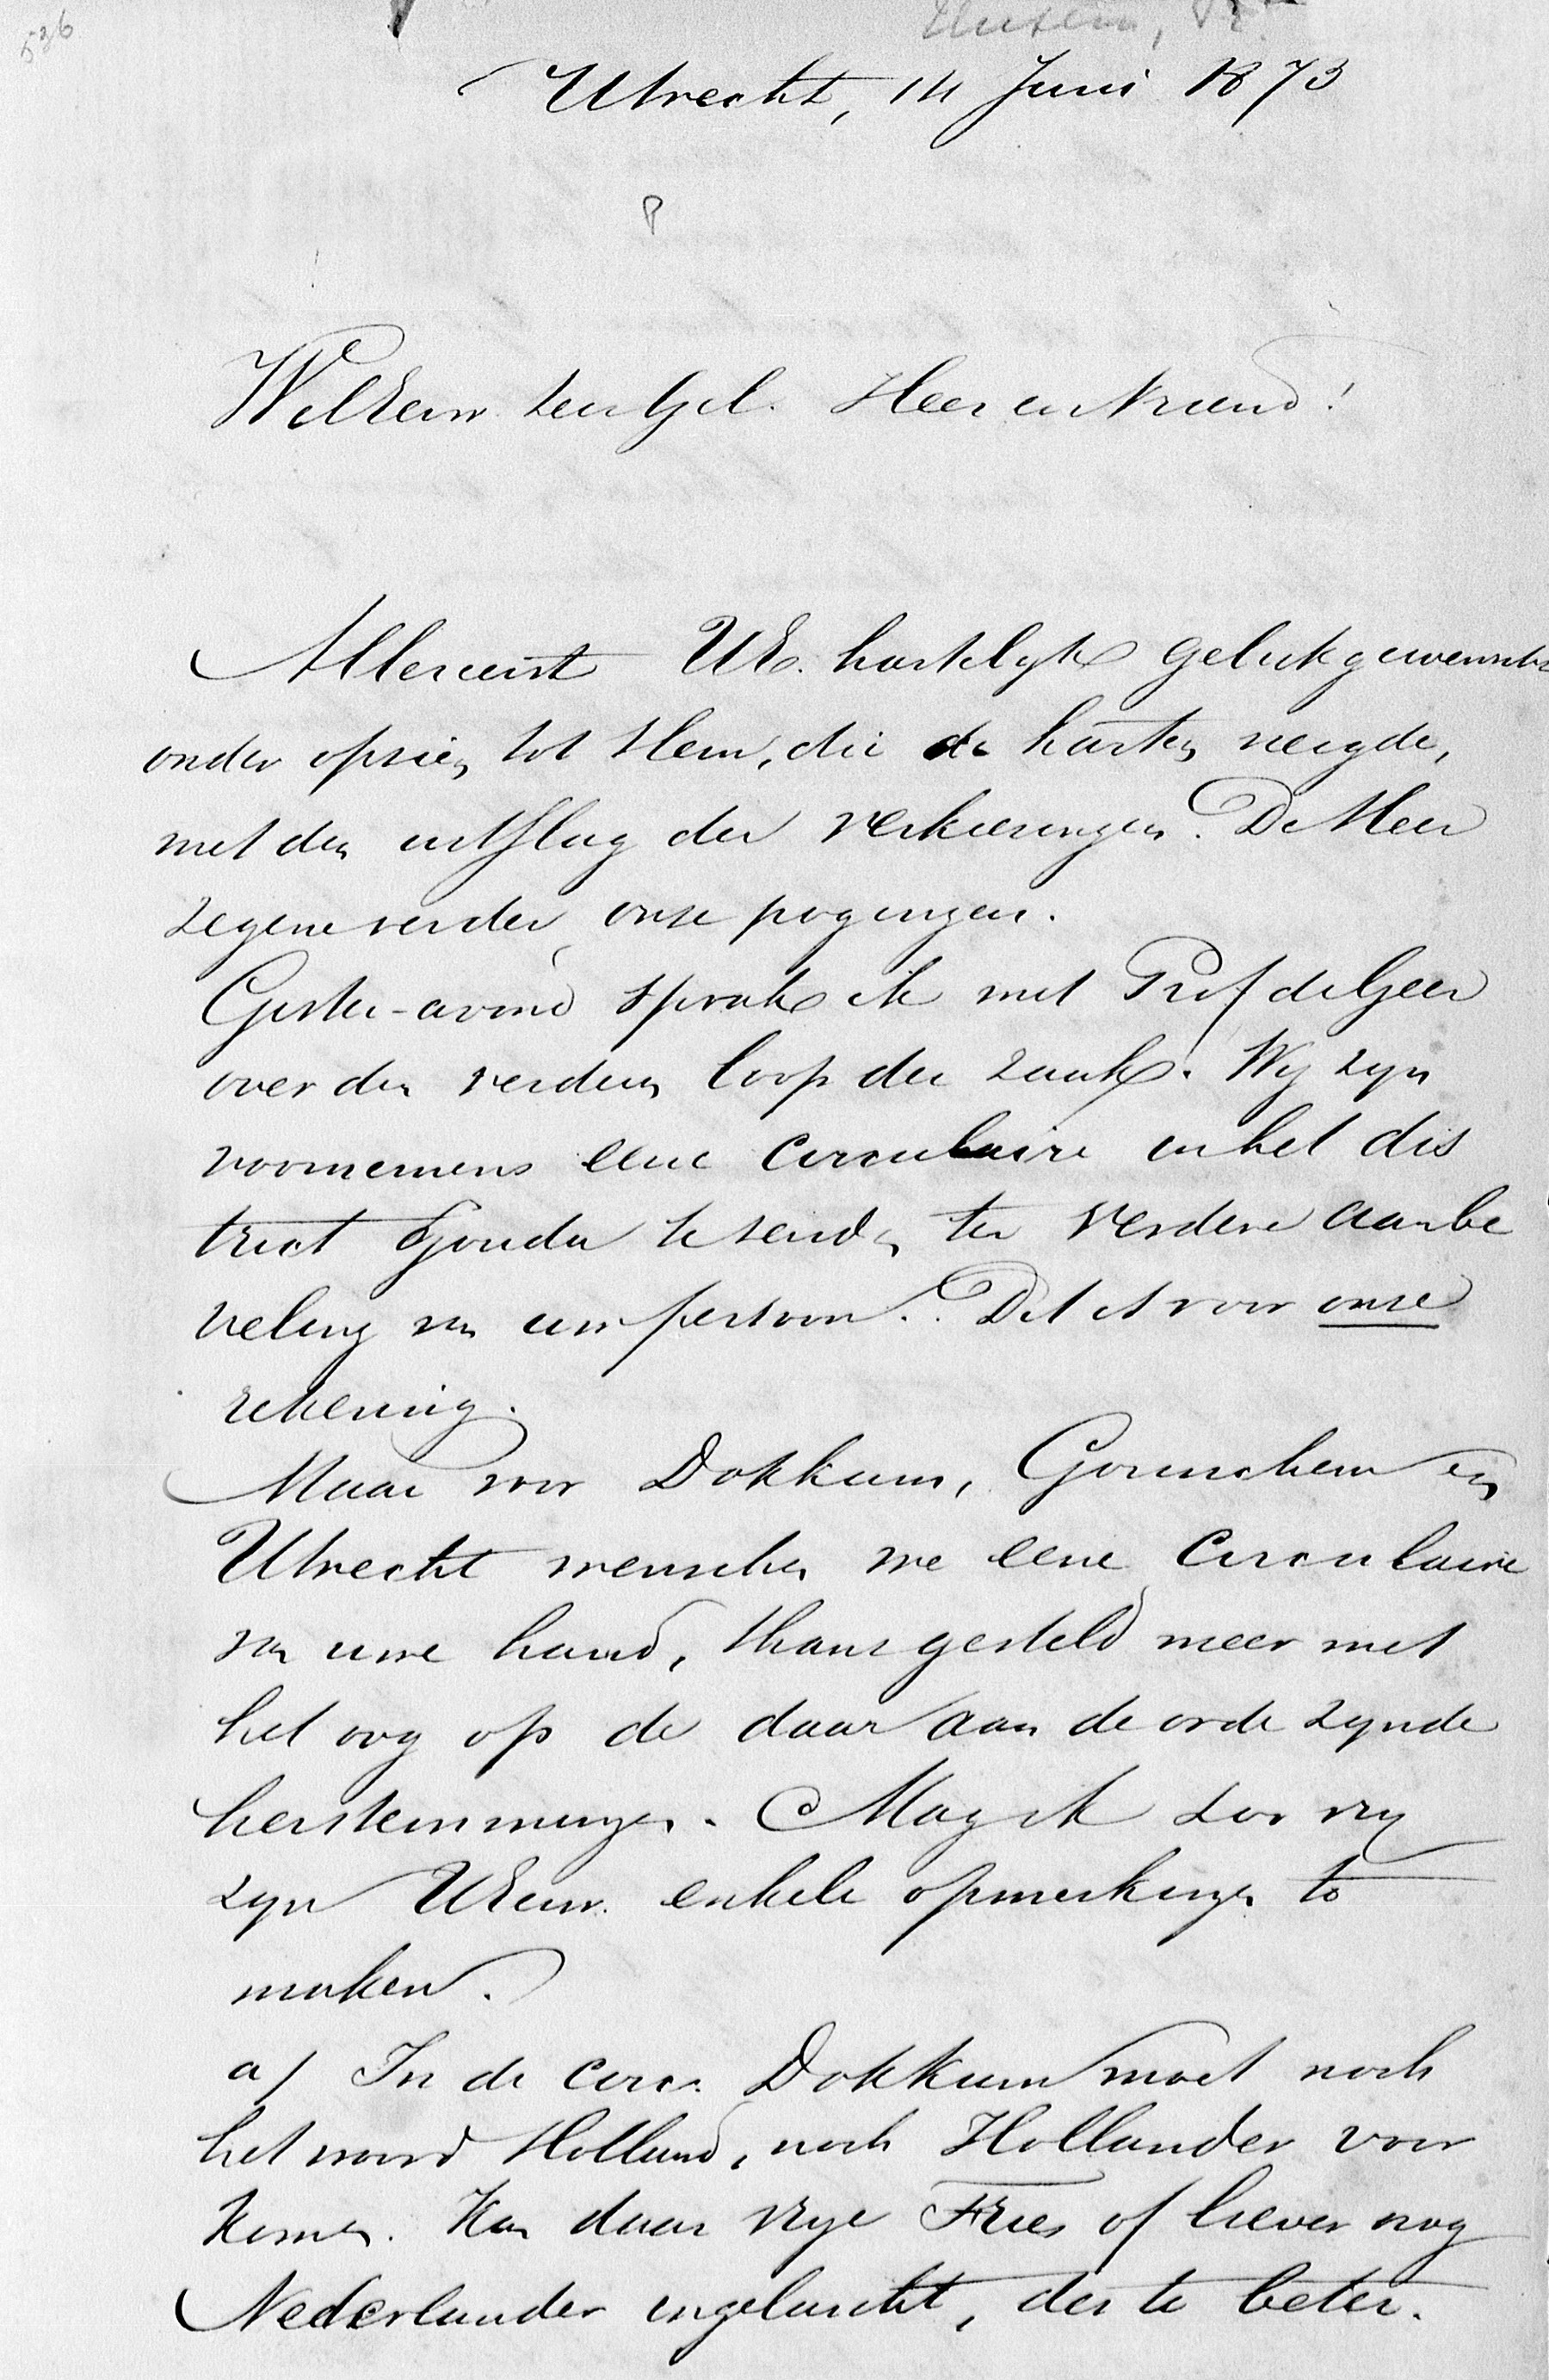 536
Utrecht, 14 Juni 1873
WelEerw. zeer Gel. Heer en Vriend!
Allereerst UE. hartelijk gelukgewenscht
onder opzien tot Hem, die de harten neigde,
met den uitslag der verkiezingen. De Heer
zegene verder onze pogingen.
Gister-avond sprak ik met Prof de Geer
over den verderen loop der zaak. Wij zijn
voornemens eene circulaire in het dis
trict Gouda te zenden ter verdere aanbe
veling van uw persoon. Dit is voor onze
rekening.
Maar voor Dokkum, Gorinchem en
Utrecht wenschen we eene circulaire
van uwe hand, thans gesteld meer met
het oog op de daar aan de orde zijnde
herstemmingen. Mag ik zoo vrij
zijn UEerw. enkele opmerkingen te
maken.
a/ In de circ. Dokkum moet noch
het woord Holland, noch Hollander voor
komen. Kan daar vrije Fries of liever nog
Nederlander ingelascht, des te beter.